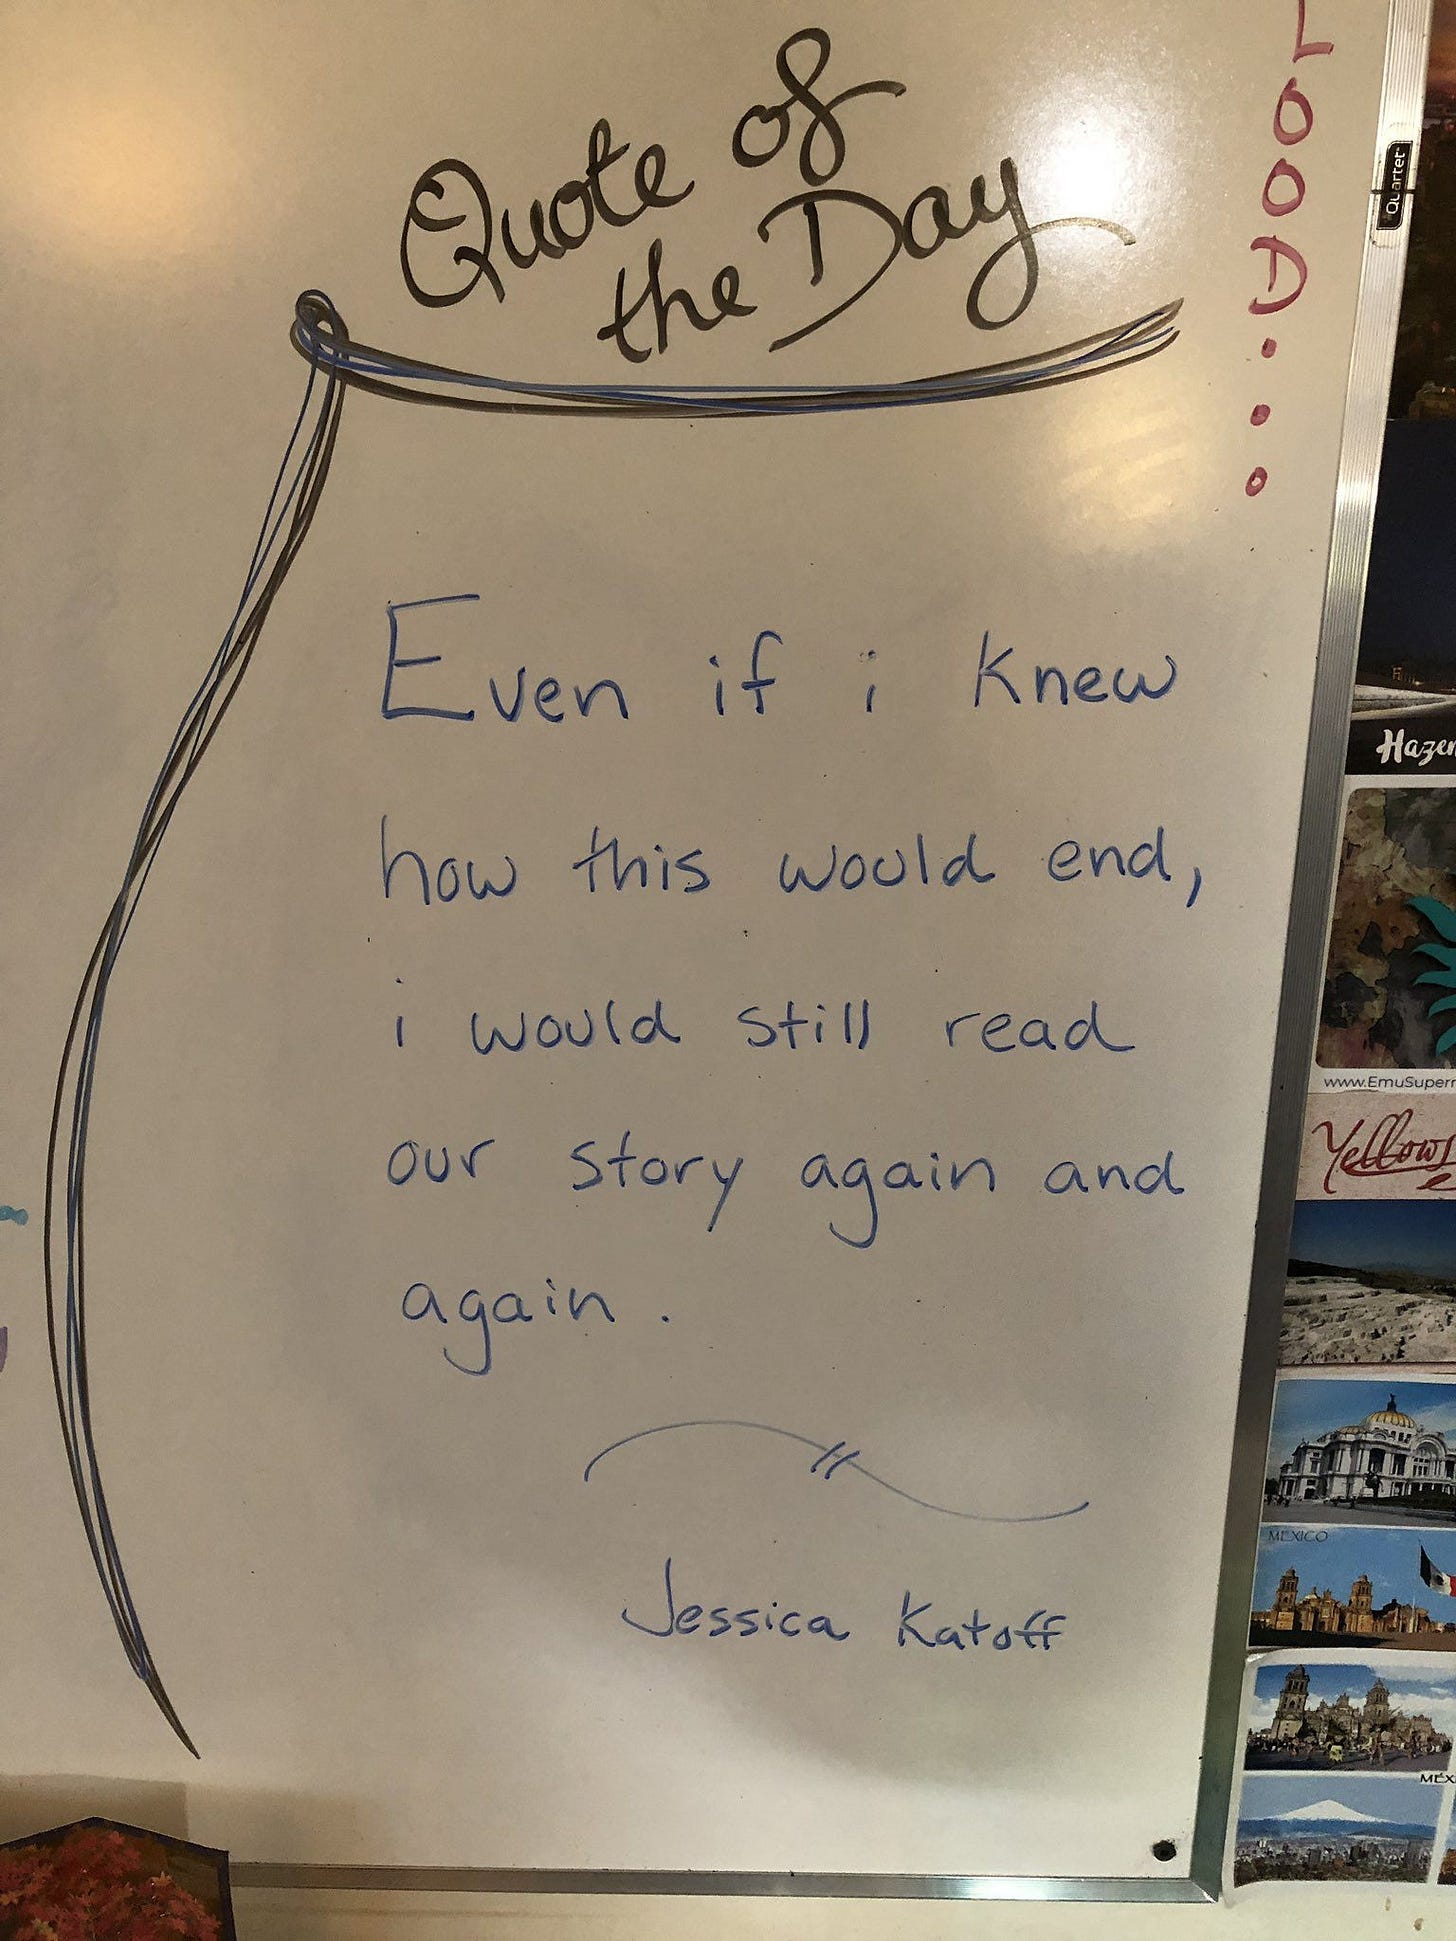 Quote of
the Day
Even if i knew
how this would end,
i would still read
our story again and
again.
Jessica Katoff
LOOD...
Quartet
www.EmuSuper
MEXICO